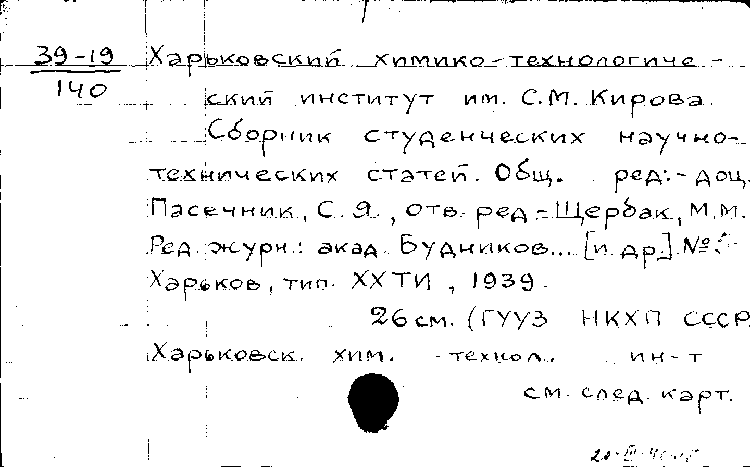 39-19 Харьковский химико-технологиче-
140 ский институт им. С.М. Кирова.
Сборник студенческих научно-
технических статей. Общ. ред:-доц.
Пасечник, С. Я., отв. ред-Щербак, М.М.
Ред. журн.: акад. Будников... [и др.] №
Харьков, тип. ХХТИ, 1939.
26 см. (ГУУЗ НКХП СССР
Харьковск. хим. -технол. ин-т
см. след. карт.